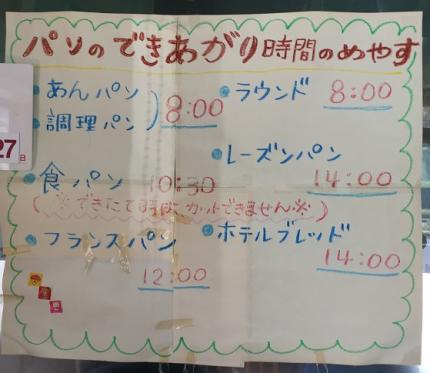 パンのできあがり時間のめやす
あんパン
調理パン
8:00
食パン 10:30
(※できたて時は、カットできません※)
フランスパン
12:00
ラウンド 8:00
レーズンパン
14:00
ホテルブレッド
14:00
27日